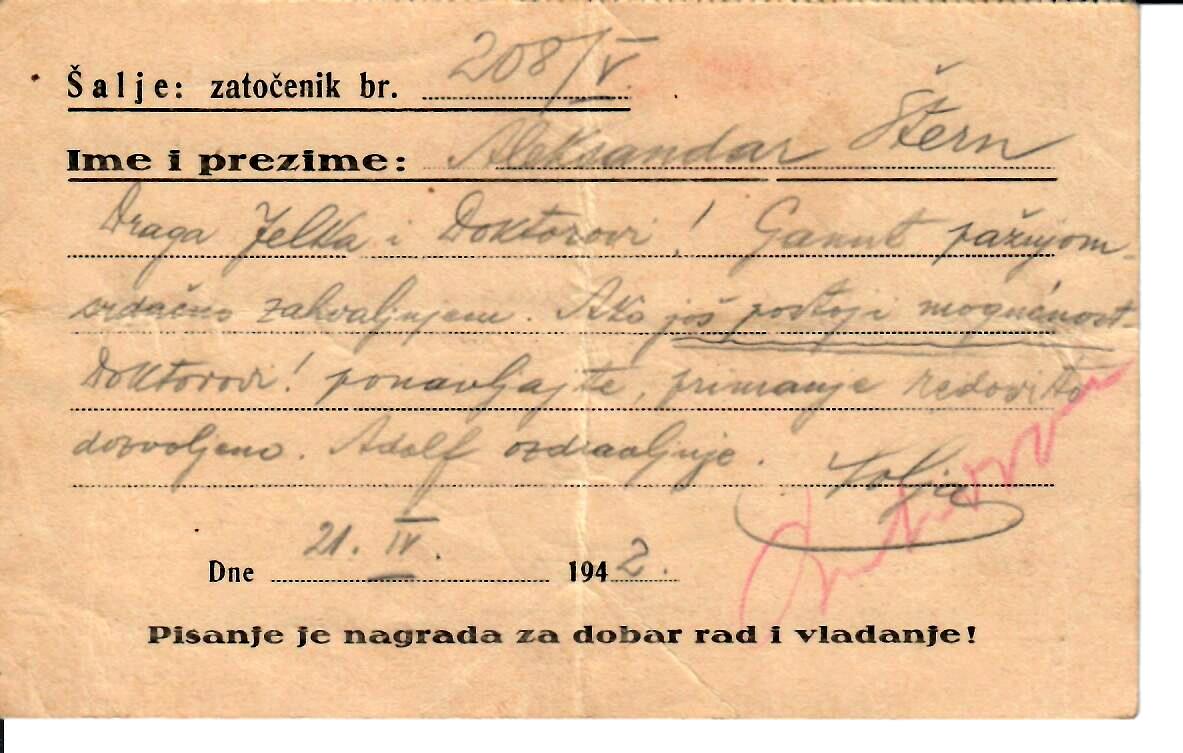 Šalje: zatočenik br. 208/V
Ime i prezime: Aleksandar Štern
Draga Jelka i Doktorovi! Ganut pažnjom
srdačno zahvaljujem. Ako još postoji mogućnost
Doktorovi! ponavljajte, primanje redovito
dozvoljeno. Adolf ozdravljuje.
Dne 21. IV. 1942.
Pisanje je nagrada za dobar rad i vladanje!